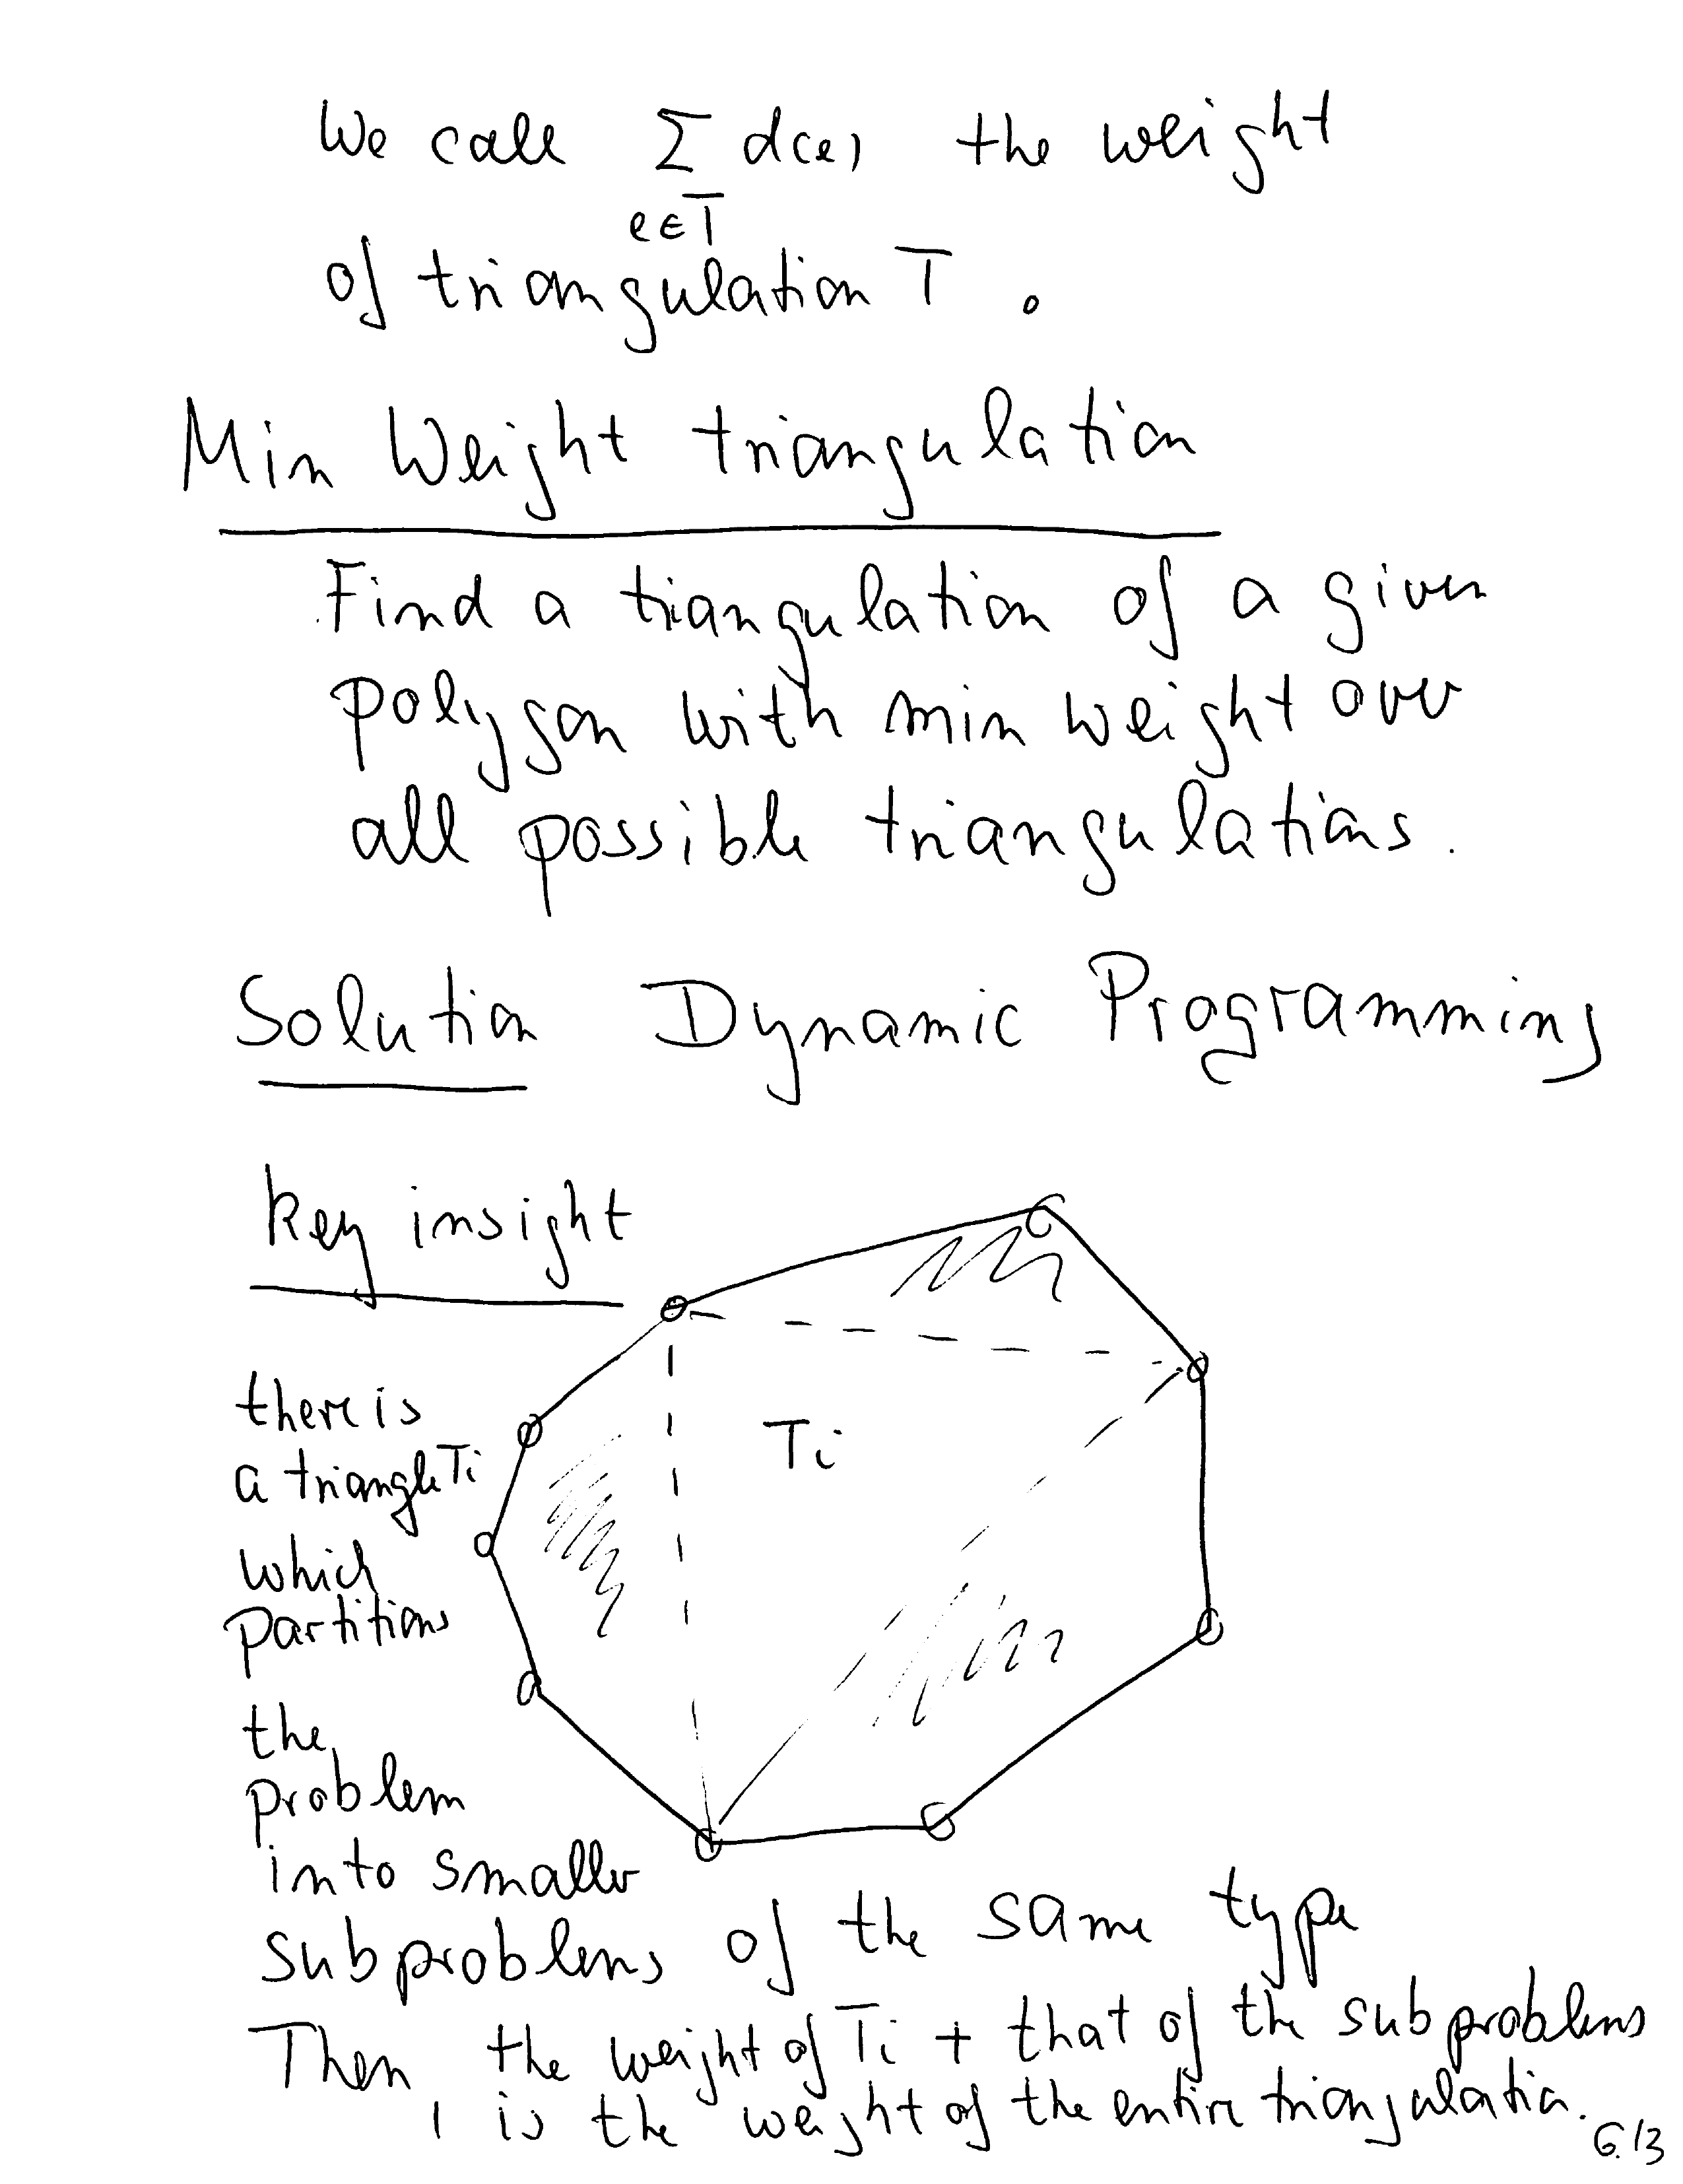 We call Σ d(e) the weight
e∈T
of triangulation T.
Min Weight triangulation
Find a triangulation of a given
polygon with min weight over
all possible triangulations.
Solution Dynamic Programming
key insight
there is
a triangle Ti
which
partitions
the
problem
into smaller
subproblems of the same type
Then, the weight of Ti + that of the subproblems
is the weight of the entire triangulation.
Ti
6.13